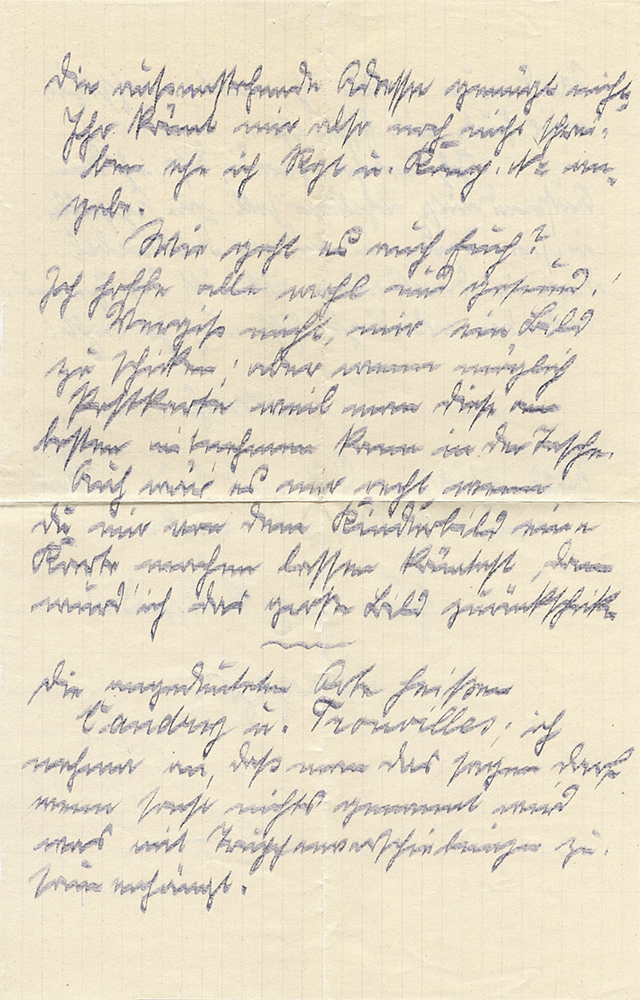 Die außenstehende Adresse genügt nicht.
Ihr könnt mir also noch nicht schrei-
ben ehe ich Rgt u. Komp. № an-
gebe.
Wie geht es auch Euch?
Ich hoffe alle wohl und gesund.
Vergiß nicht, mir ein Bild
zu schicken, aber wenn möglich
Postkarte weil man diese am
besten mitnehmen kann in der Tasche.
Auch wär es mir recht wenn
du mir von dem Kinderbild eine
Karte machen lassen könntest, dann
würd ich das große Bild zurückschick.
Die angedeuteten Orte heißen
Landres u. Tronvilles, ich
nehme an, daß man das sagen darf
wenn sonst nichts genannt wird
was mit Truppenverschiebungen zu-
sammenhängt.